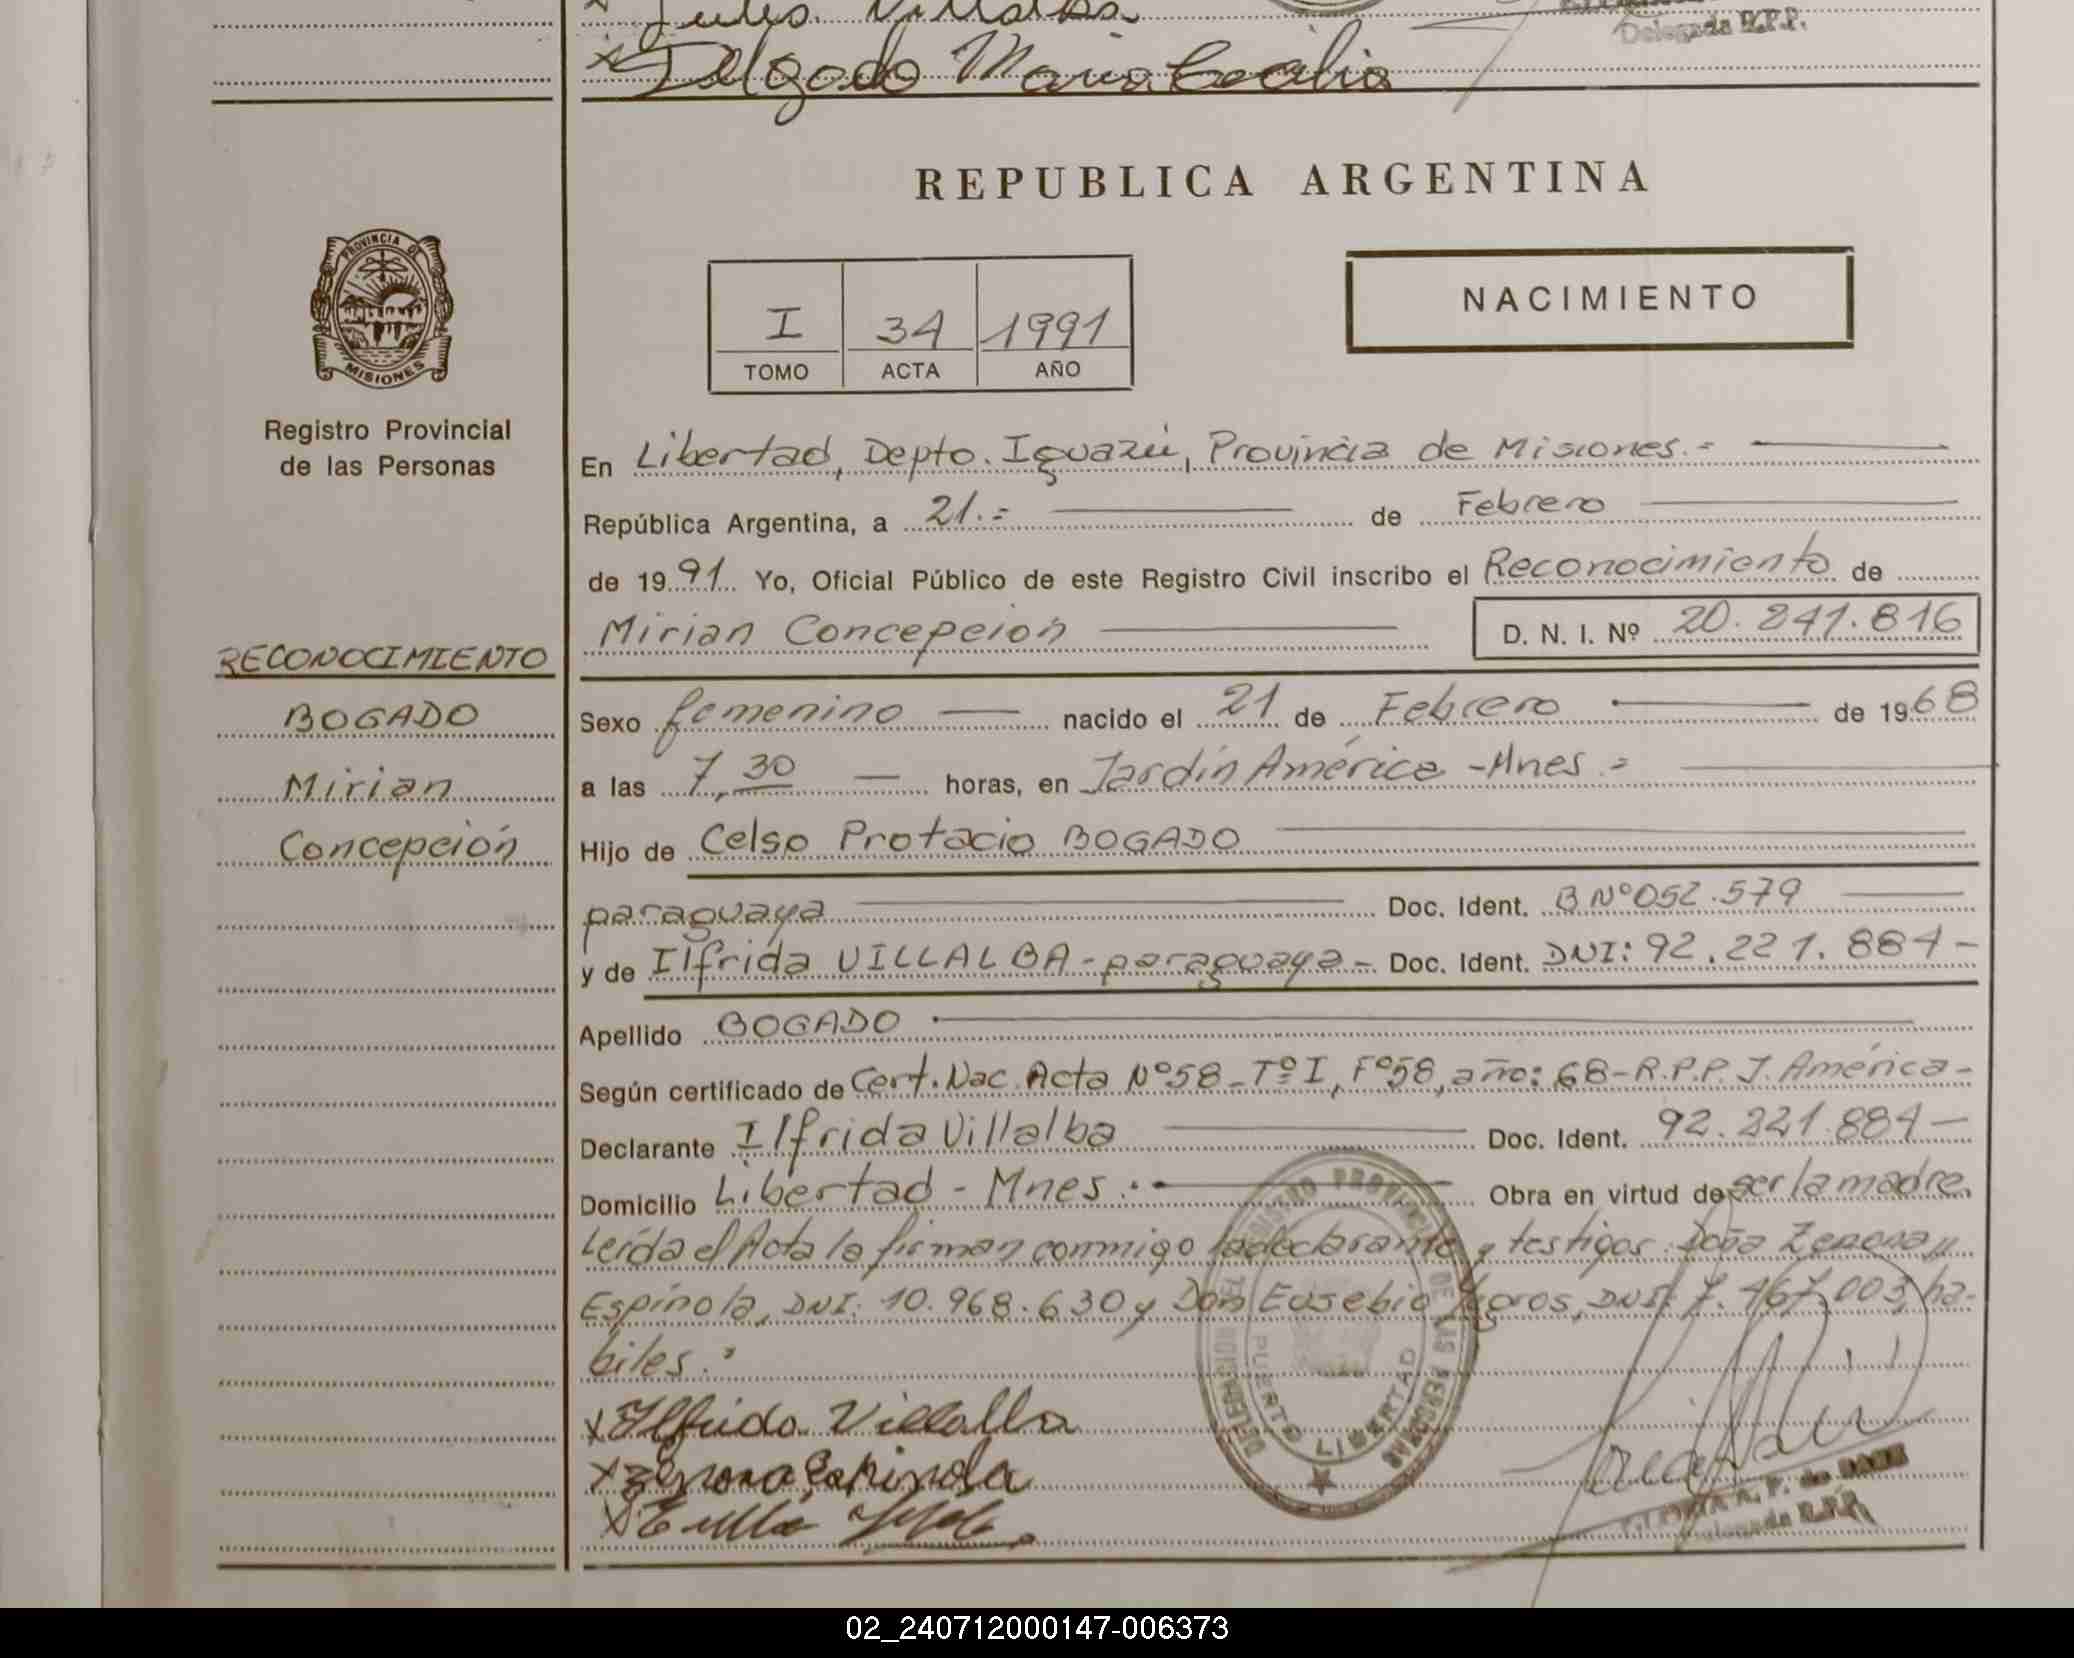 Julia Villalba
x Delgado Maria Cecilia
Delegada R.P.P.
REPUBLICA ARGENTINA
PROVINCIA DE
MISIONES
Registro Provincial
de las Personas
I 34 1991
TOMO ACTA AÑO
NACIMIENTO
En Libertad, Depto. Iguazú, Provincia de Misiones.=
República Argentina, a 21.= de Febrero
de 1991 Yo, Oficial Público de este Registro Civil inscribo el Reconocimiento de
Mirian Concepción
D. N. I. Nº 20.241.816
RECONOCIMIENTO
BOGADO
Mirian
Concepción
Sexo femenino nacido el 21 de Febrero de 1968
a las 7,30 horas, en Jardín América - Mnes.=
Hijo de Celso Protacio BOGADO
paraguaya Doc. Ident. B Nº 052.579
y de Ilfrida VILLALBA - paraguaya - Doc. Ident. DNI: 92.221.884 -
Apellido BOGADO
Según certificado de Cert. Nac. Acta Nº58 - Tº I, Fº58, año: 68 - R.P.P. J. América -
Declarante Ilfrida Villalba Doc. Ident. 92.221.884 -
Domicilio Libertad - Mnes. Obra en virtud de ser la madre.
Leída el Acta la firman conmigo la declarante y testigos Doña Zenona
Espínola, DNI. 10.968.630 y Don Eusebio DNI. 7.467.003, ha-
biles.=
x Ilfrida Villalba
x Zenona Espinola
PUERTO LIBERTAD
Delegada R.P.P.
02_240712000147-006373